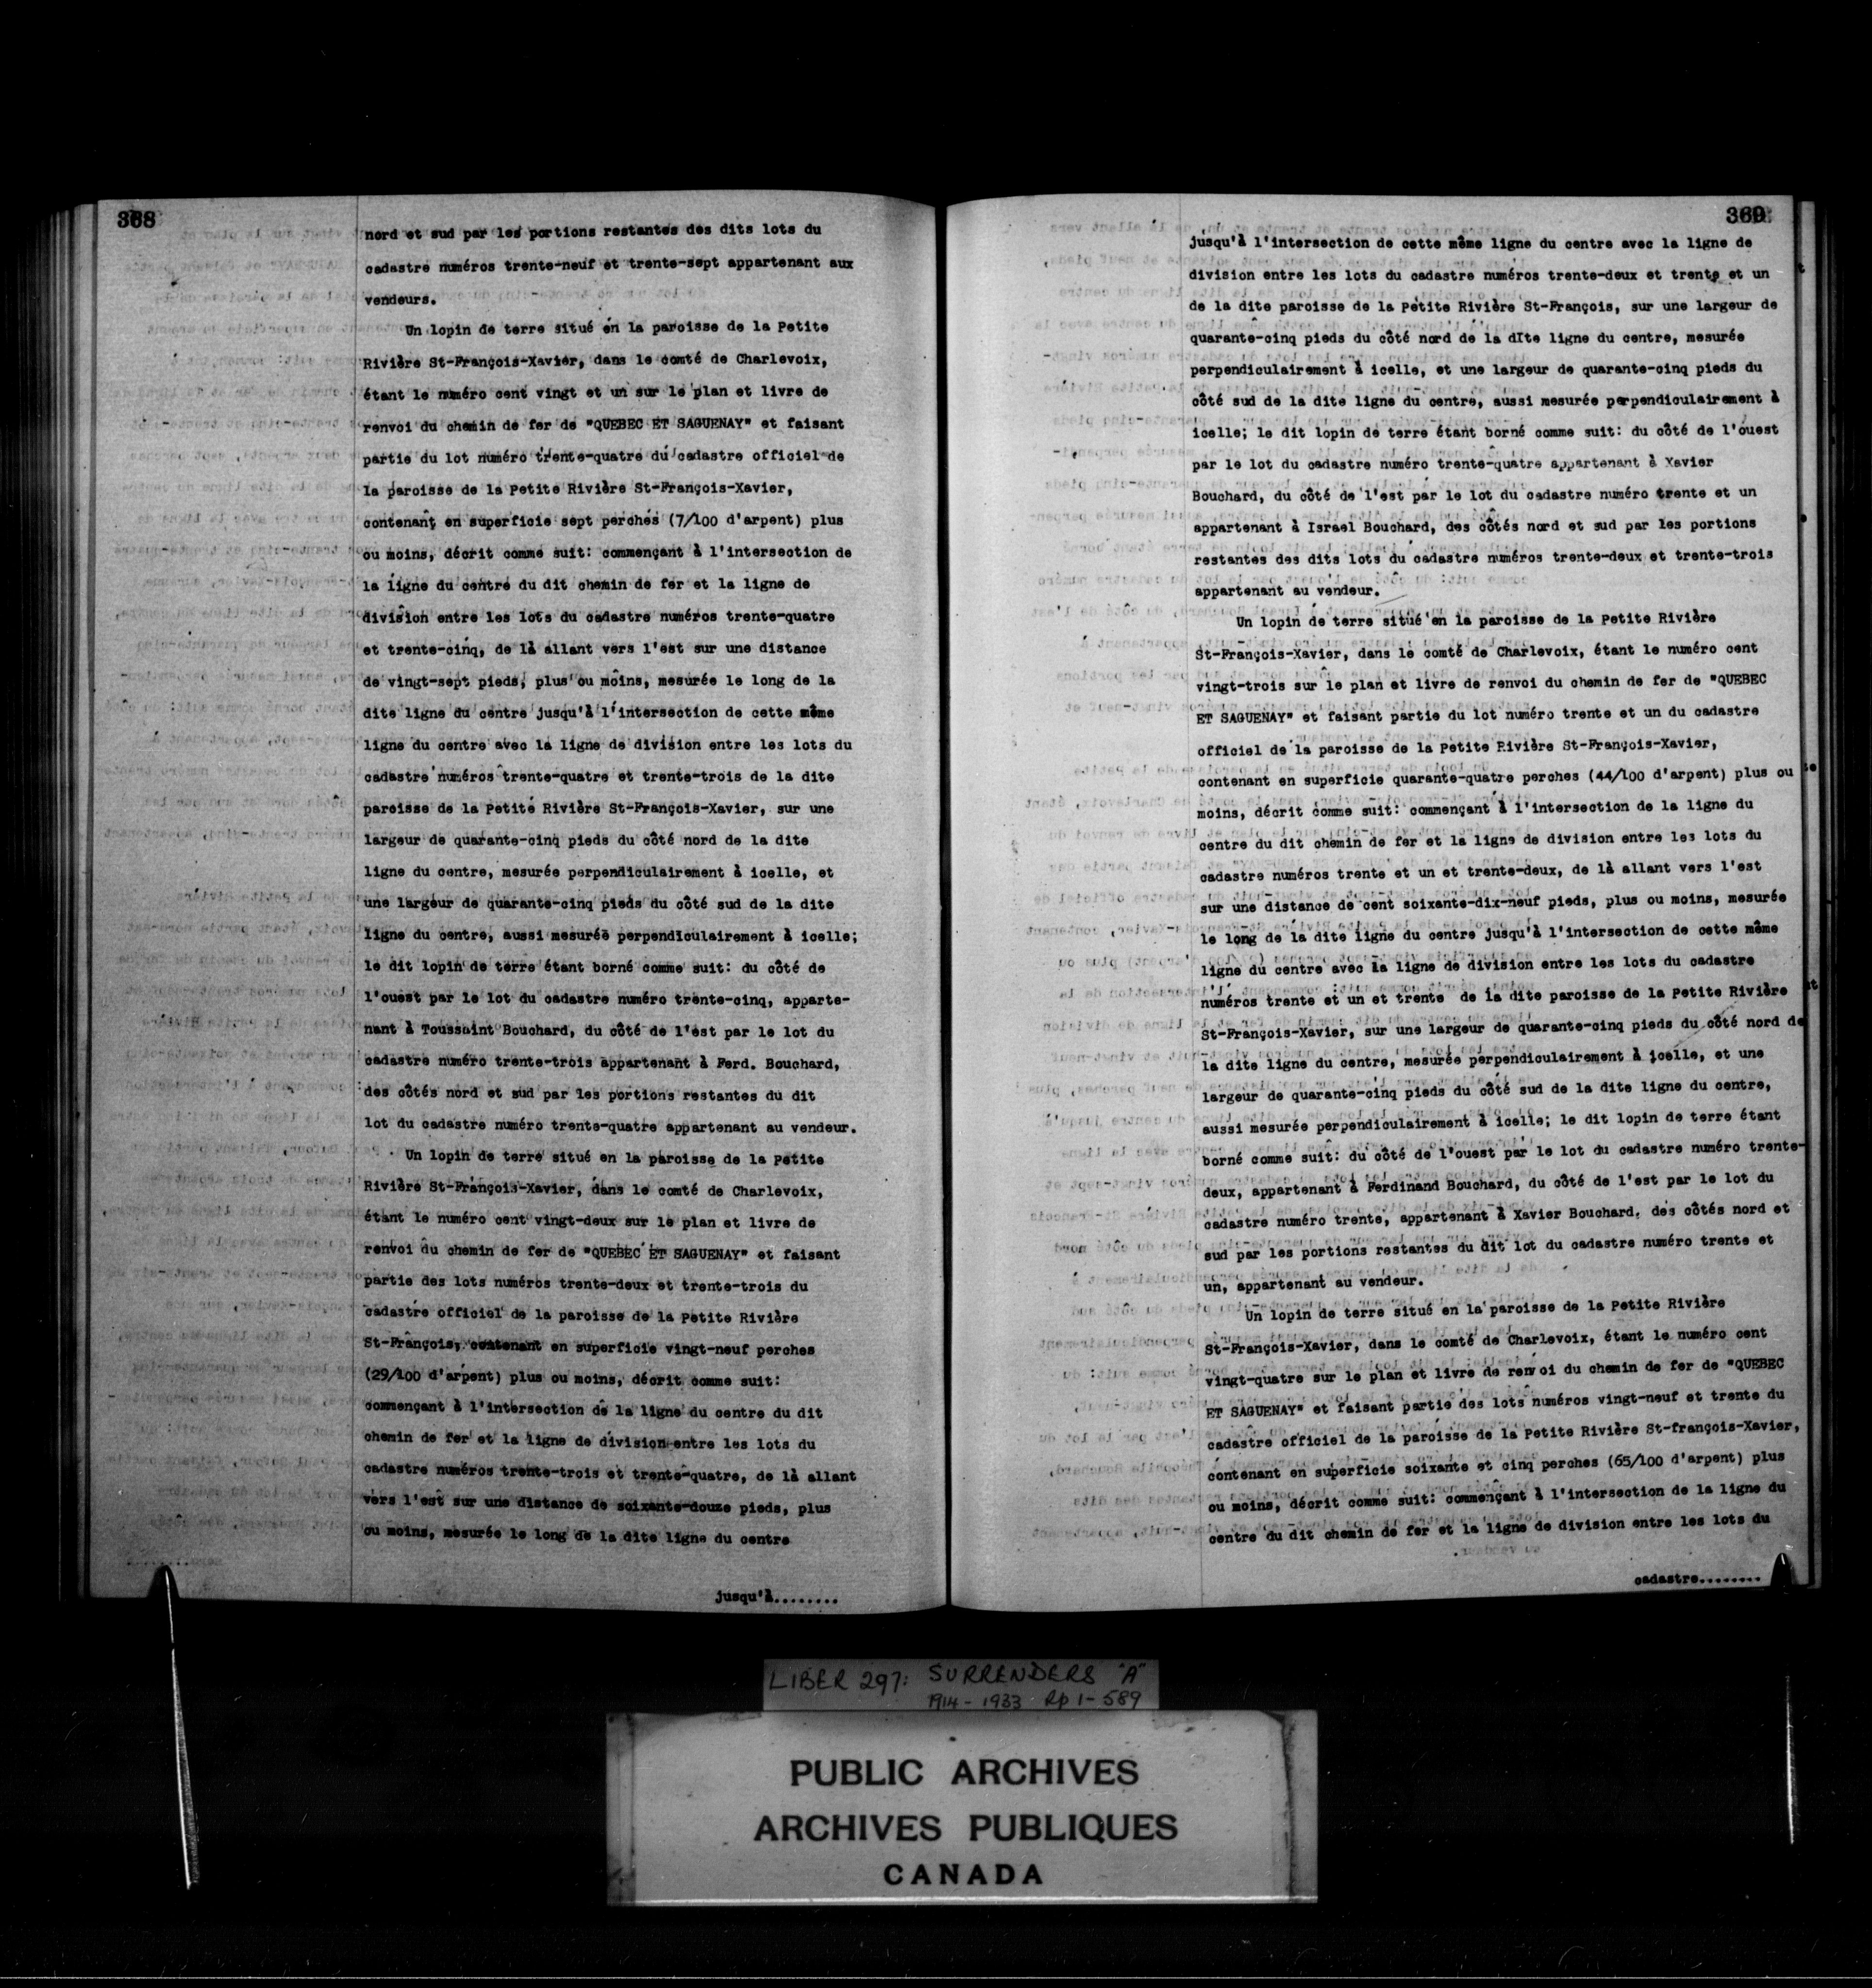 368
nord et sud par les portions restantes des dits lots du
cadastre numéros trente-neuf et trente-sept appartenant aux
vendeurs.
Un lopin de terre situé en la paroisse de la Petite
Rivière St-François-Xavier, dans le comté de Charlevoix,
étant le numéro cent vingt et un sur le plan et livre de
renvoi du chemin de fer de "QUEBEC ET SAGUENAY" et faisant
partie du lot numéro trente-quatre du cadastre officiel de
la paroisse de la Petite Rivière St-François-Xavier,
contenant en superficie sept perches (7/100 d'arpent) plus
ou moins, décrit comme suit: commençant à l'intersection de
la ligne du centre du dit chemin de fer et la ligne de
division entre les lots du cadastre numéros trente-quatre
et trente-cinq, de là allant vers l'est sur une distance
de vingt-sept pieds, plus ou moins, mesurée le long de la
dite ligne du centre jusqu'à l'intersection de cette même
ligne du centre avec la ligne de division entre les lots du
cadastre numéros trente-quatre et trente-trois de la dite
paroisse de la Petite Rivière St-François-Xavier, sur une
largeur de quarante-cinq pieds du côté nord de la dite
ligne du centre, mesurée perpendiculairement à icelle, et
une largeur de quarante-cinq pieds du côté sud de la dite
ligne du centre, aussi mesurée perpendiculairement à icelle;
le dit lopin de terre étant borné comme suit: du côté de
l'ouest par le lot du cadastre numéro trente-cinq, apparte-
nant à Toussaint Bouchard, du côté de l'est par le lot du
cadastre numéro trente-trois appartenant à Ferd. Bouchard,
des côtés nord et sud par les portions restantes du dit
lot du cadastre numéro trente-quatre appartenant au vendeur.
Un lopin de terre situé en la paroisse de la Petite
Rivière St-François-Xavier, dans le comté de Charlevoix,
étant le numéro cent vingt-deux sur le plan et livre de
renvoi du chemin de fer de "QUEBEC ET SAGUENAY" et faisant
partie des lots numéros trente-deux et trente-trois du
cadastre officiel de la paroisse de la Petite Rivière
St-François, contenant en superficie vingt-neuf perches
(29/100 d'arpent) plus ou moins, décrit comme suit:
commençant à l'intersection de la ligne du centre du dit
chemin de fer et la ligne de division entre les lots du
cadastre numéros trente-trois et trente-quatre, de là allant
vers l'est sur une distance de soixante-douze pieds, plus
ou moins, mesurée le long de la dite ligne du centre
jusqu'à........
369
jusqu'à l'intersection de cette même ligne du centre avec la ligne de
division entre les lots du cadastre numéros trente-deux et trente et un
de la dite paroisse de la Petite Rivière St-François, sur une largeur de
quarante-cinq pieds du côté nord de la dIte ligne du centre, mesurée
perpendiculairement à icelle, et une largeur de quarante-cinq pieds du
côté sud de la dite ligne du centre, aussi mesurée perpendiculairement à
icelle; le dit lopin de terre étant borné comme suit: du côté de l'ouest
par le lot du cadastre numéro trente-quatre appartenant à Xavier
Bouchard, du côté de l'est par le lot du cadastre numéro trente et un
appartenant à Israel Bouchard, des côtés nord et sud par les portions
restantes des dits lots du cadastre numéros trente-deux et trente-trois
appartenant au vendeur.
Un lopin de terre situé en la paroisse de la Petite Rivière
St-François-Xavier, dans le comté de Charlevoix, étant le numéro cent
vingt-trois sur le plan et livre de renvoi du chemin de fer de "QUEBEC
ET SAGUENAY" et faisant partie du lot numéro trente et un du cadastre
officiel de la paroisse de la Petite Rivière St-François-Xavier,
contenant en superficie quarante-quatre perches (44/100 d'arpent) plus ou
moins, décrit comme suit: commençant à l'intersection de la ligne du
centre du dit chemin de fer et la ligne de division entre les lots du
cadastre numéros trente et un et trente-deux, de là allant vers l'est
sur une distance de cent soixante-dix-neuf pieds, plus ou moins, mesurée
le long de la dite ligne du centre jusqu'à l'intersection de cette même
ligne du centre avec la ligne de division entre les lots du cadastre
numéros trente et un et trente de la dite paroisse de la Petite Rivière
St-François-Xavier, sur une largeur de quarante-cinq pieds du côté nord de
la dite ligne du centre, mesurée perpendiculairement à icelle, et une
largeur de quarante-cinq pieds du côté sud de la dite ligne du centre,
aussi mesurée perpendiculairement à icelle; le dit lopin de terre étant
borné comme suit: du côté de l'ouest par le lot du cadastre numéro trente-
deux, appartenant à Ferdinand Bouchard, du côté de l'est par le lot du
cadastre numéro trente, appartenant à Xavier Bouchard, des côtés nord et
sud par les portions restantes du dit lot du cadastre numéro trente et
un, appartenant au vendeur.
Un lopin de terre situé en la paroisse de la Petite Rivière
St-François-Xavier, dans le comté de Charlevoix, étant le numéro cent
vingt-quatre sur le plan et livre de renvoi du chemin de fer de "QUEBEC
ET SAGUENAY" et faisant partie des lots numéros vingt-neuf et trente du
cadastre officiel de la paroisse de la Petite Rivière St-françois-Xavier,
contenant en superficie soixante et cinq perches (65/100 d'arpent) plus
ou moins, décrit comme suit: commençant à l'intersection de la ligne du
centre du dit chemin de fer et la ligne de division entre les lots du
cadastre........
LIBER 297: SURRENDERS "A"
1914 - 1933 Rp 1 - 589
PUBLIC ARCHIVES
ARCHIVES PUBLIQUES
CANADA